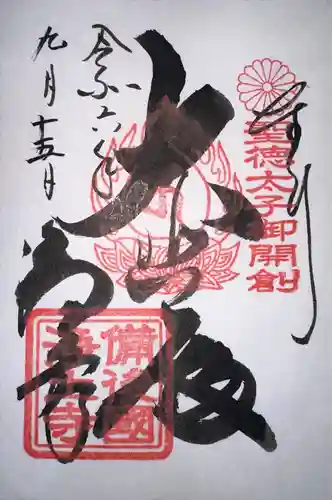 聖徳太子御開創
大悲殿
令和六年
九月十五日
備後國
浄土寺